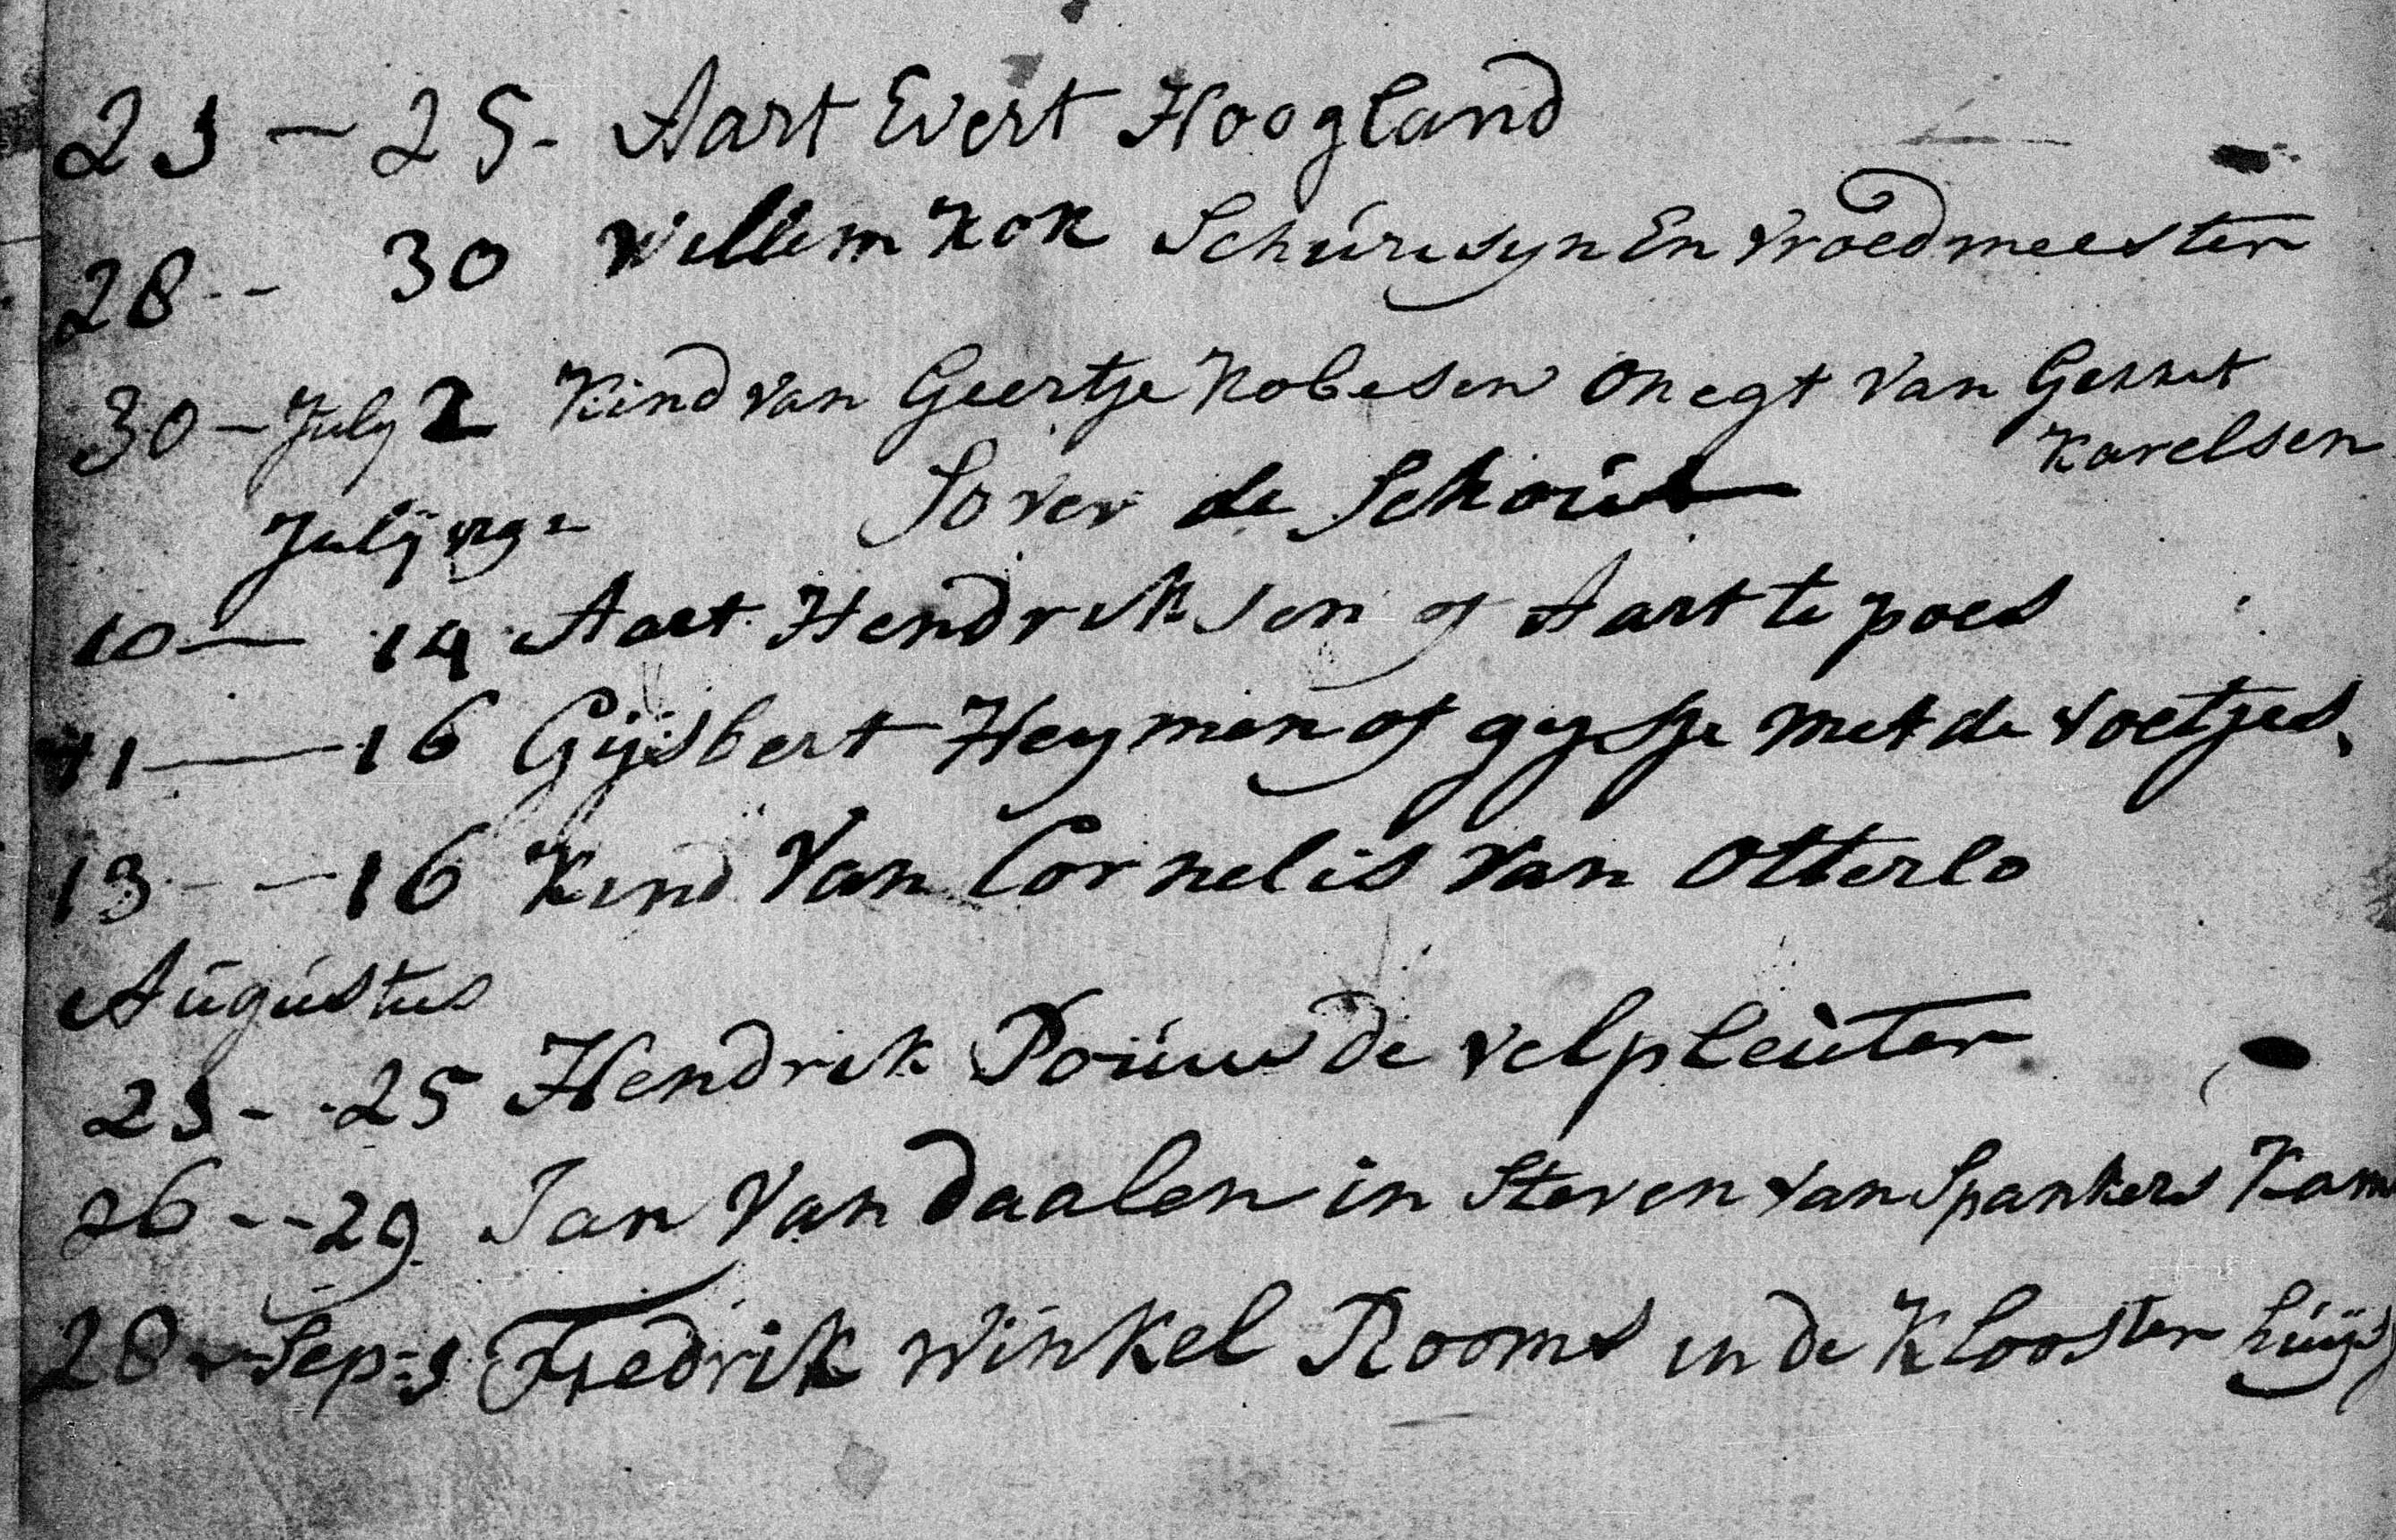 23 - 25 - Aart Evert Hoogland
28 - - 30 Willem Kok Schurisyn En vroedmeester
30 - July 2 Kind van Geertje Kobesen Onegt van Gerret
Karelsen
So ver de Schout
July
10 — 14 Aart Hendriksen of Aart te poes
11 — 16 Gijsbert Heymen of gysje met de voetjes
13 - - 16 Kind van Cornelis van Otterlo
Augustus
23 - - 25 Hendrik Pouw de velpleuter
26 - - 29 Jan van daalen in Steven van Spankers Kam
28 - Sep: 1 Fredrik Winkel Rooms in de Klooster huijs